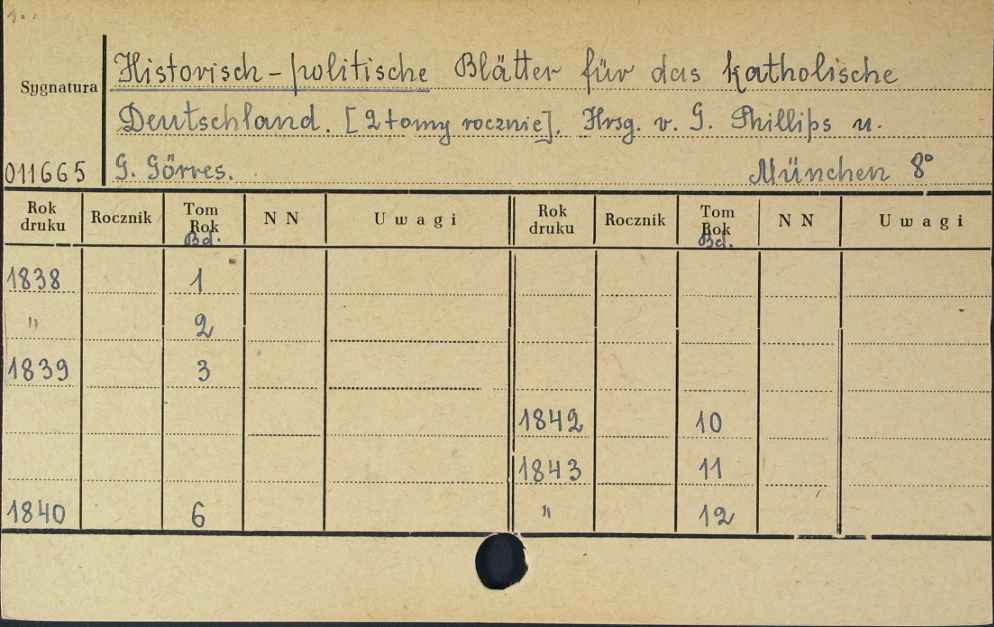 Sygnatura
Historisch-politische Blätter für das katholische
Deutschland. [2 tomy rocznie]. Hrsg. v. G. Phillips u.
011665 G. Görres. München 8°
Rok druku Rocznik Tom Rok Bd. N N Uwagi Rok druku Rocznik Tom Rok Bd. N N Uwagi
1838 1
" 2
1839 3
1842 10
1843 11
1840 6 " 12